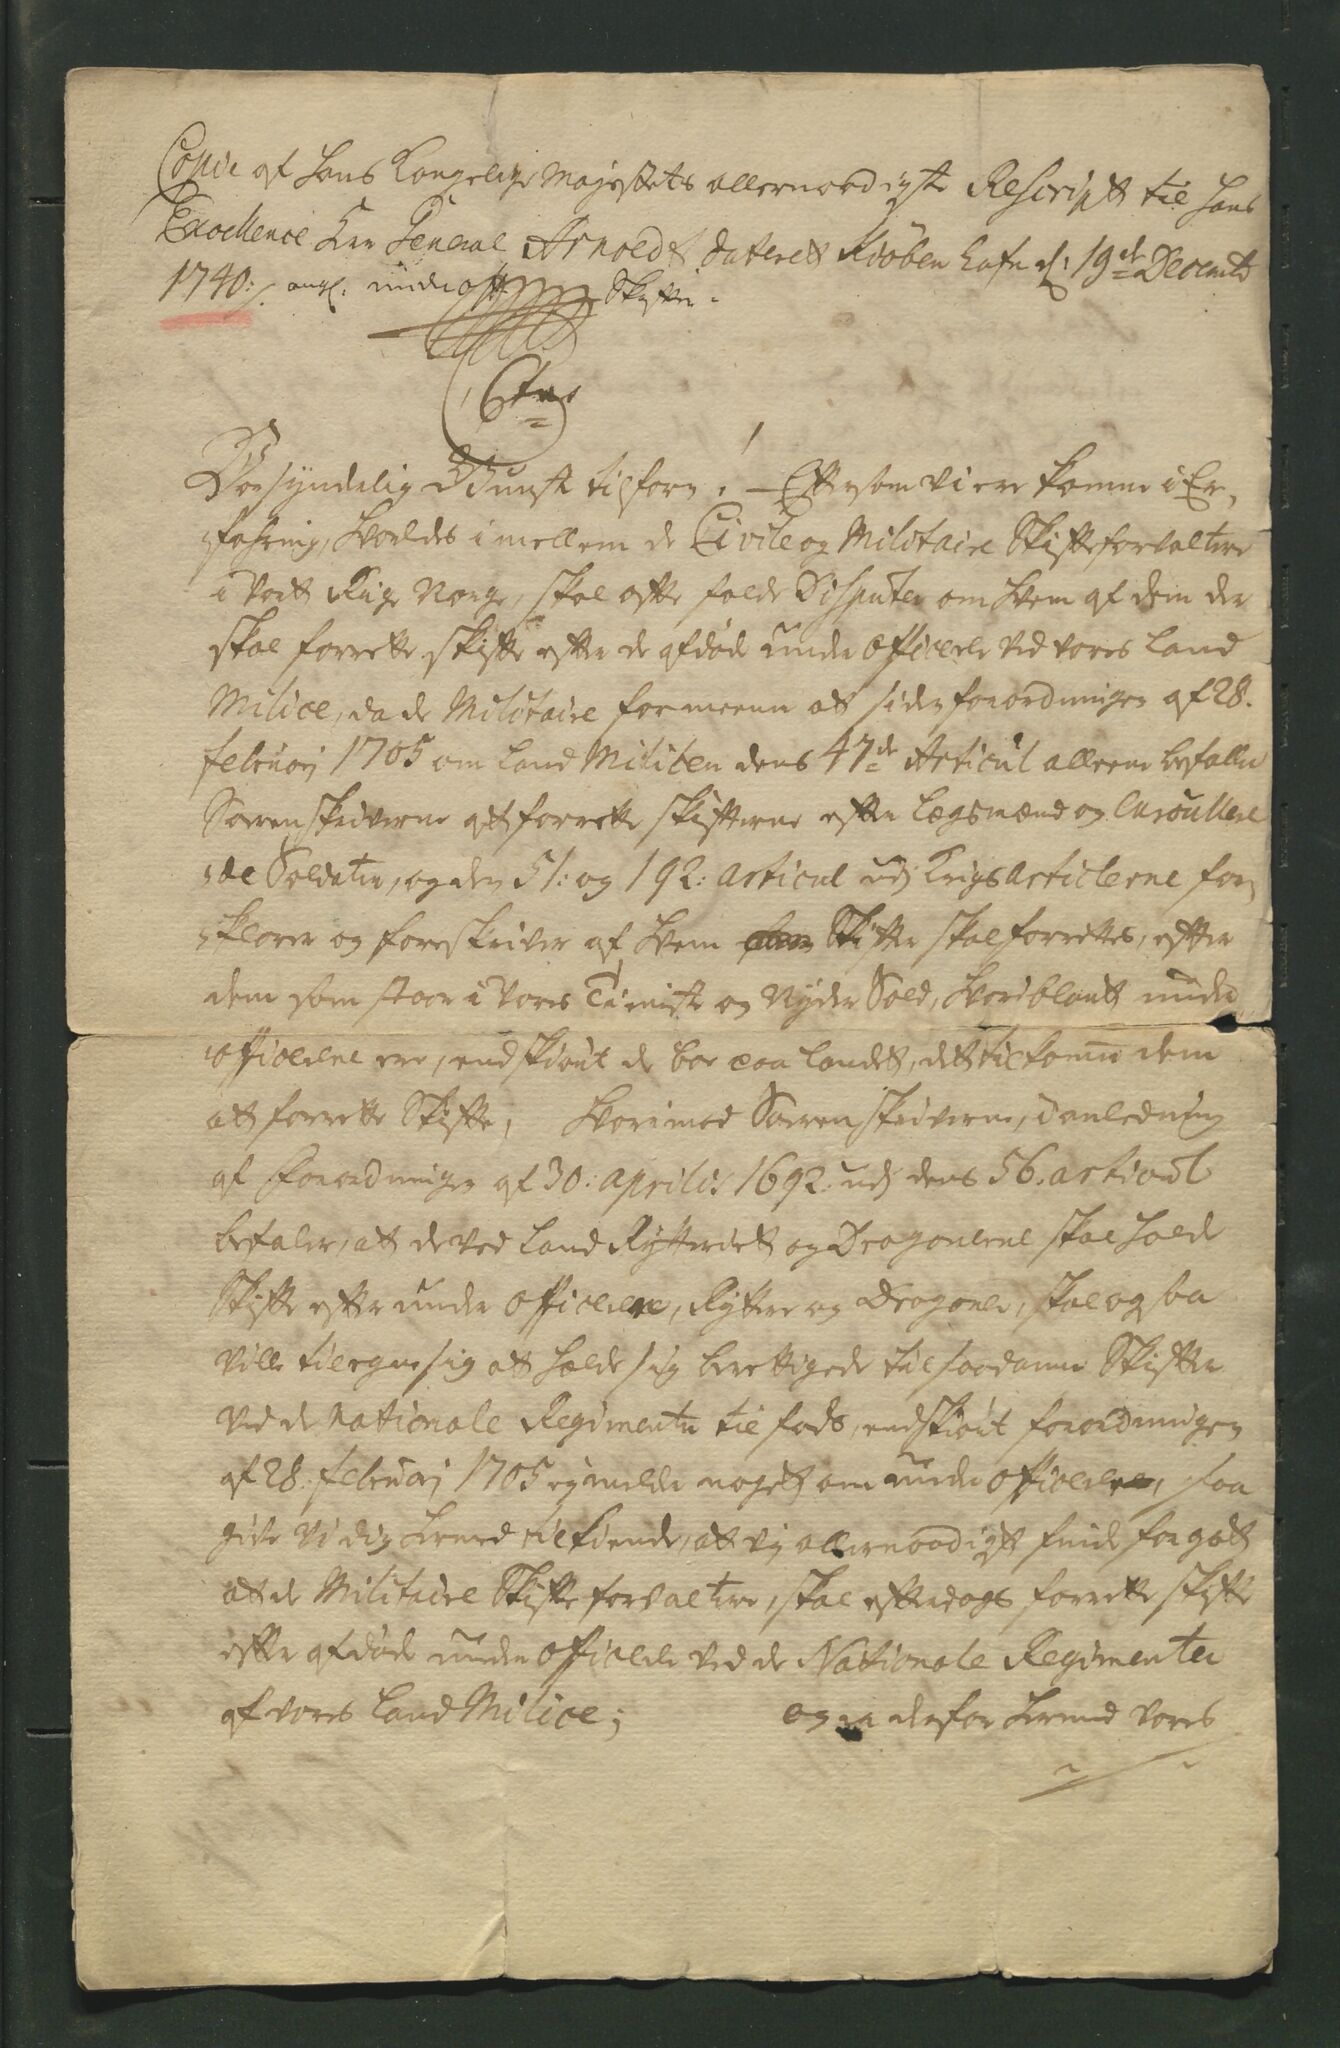 Copie af Hans Kongelige Majestets allernaadigste Rescript til Hans
Excellence Hr General Arnoldt dateret Kiøbenhafn d: 19de Decembr
1740: ang: under off: Skifter.
Etc
Vor synderlig Gunst tilforn, Eftersom vi ere komne i Er-
fahring, hvorledes imellem de Civile og Militaire Skifteforvaltere
i Vort Rige Norge, skal ofte falde Disputer om hvem af dem der
skal forrette skifte efter de afdøde under officerer ved vores Land
Milice, da de Militaire formeene at siden forordningen af 28.
februarj 1705 om Land Militien dens 47de Articul alleene befaller
Sorenskriverne at forrette skifterne efter Lægsmænd og Enroullere
de Soldater, og den 51: og 192: articul udj Krigs Articlerne for-
klarer og foreskriver af hvem Skifter skal forrettes, efter
dem som staar i Vores Tieniste og Nyder Sold, hvoriblant under
officerene ere, endskiønt de boe paa Landet, det tilkommer dem
at forrette Skifte, Hvorimod Sorenskriverne, i anledning
af Forordningen af 30: aprilis 1692: udj dens 56. articul
befaler, at de ved Land Rytteriet og Dragonerne skal holde
Skifte efter under officerer, Ryttere og Dragoner, skal ogsaa
ville tilegne sig at holde sig berettigede til saadanne Skifter
ved de Nationale Regimenter til fods, endskiønt forordningen
af 28: februarj 1705 ej melder noget om under officerer, saa
give Vi dig hermed tilkiende, at vj allernaadigst finde for got
at de Militaire Skifteforvaltere, skal efterdags forrette skifte
efter afdøde under officerer ved de Nationale Regimenter
af vores Land Milice; og er derfor hermed Vores